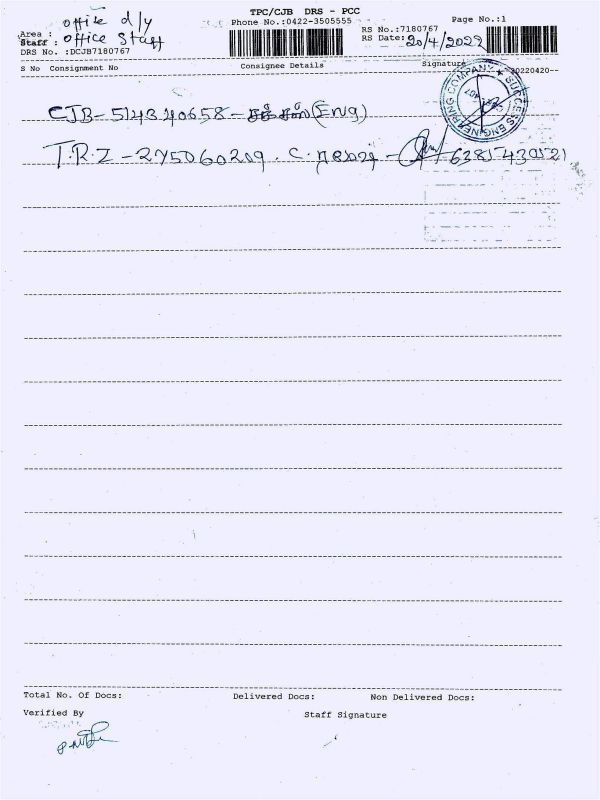 TPC/CJB DRS - PCC
Phone No.:0422-3505555
Page No.:1
Area : office d/y
Staff : office Staff
DRS No. :DCJB7180767
RS No.:7180767
RS Date: 20/4/2022
S No Consignment No Consignee Details Signature
--20220420--
SUCCESS ENGINEERING COMPANY
CJB-514340658- (Eng)
T.R.Z-275060209. C. - 6385430521
Total No. Of Docs: Delivered Docs: Non Delivered Docs:
Verified By Staff Signature